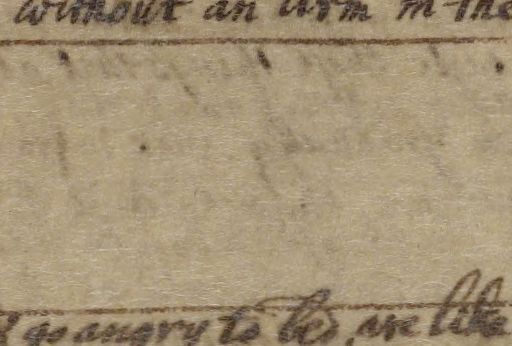 without an arm in the
go angry to bed, we like